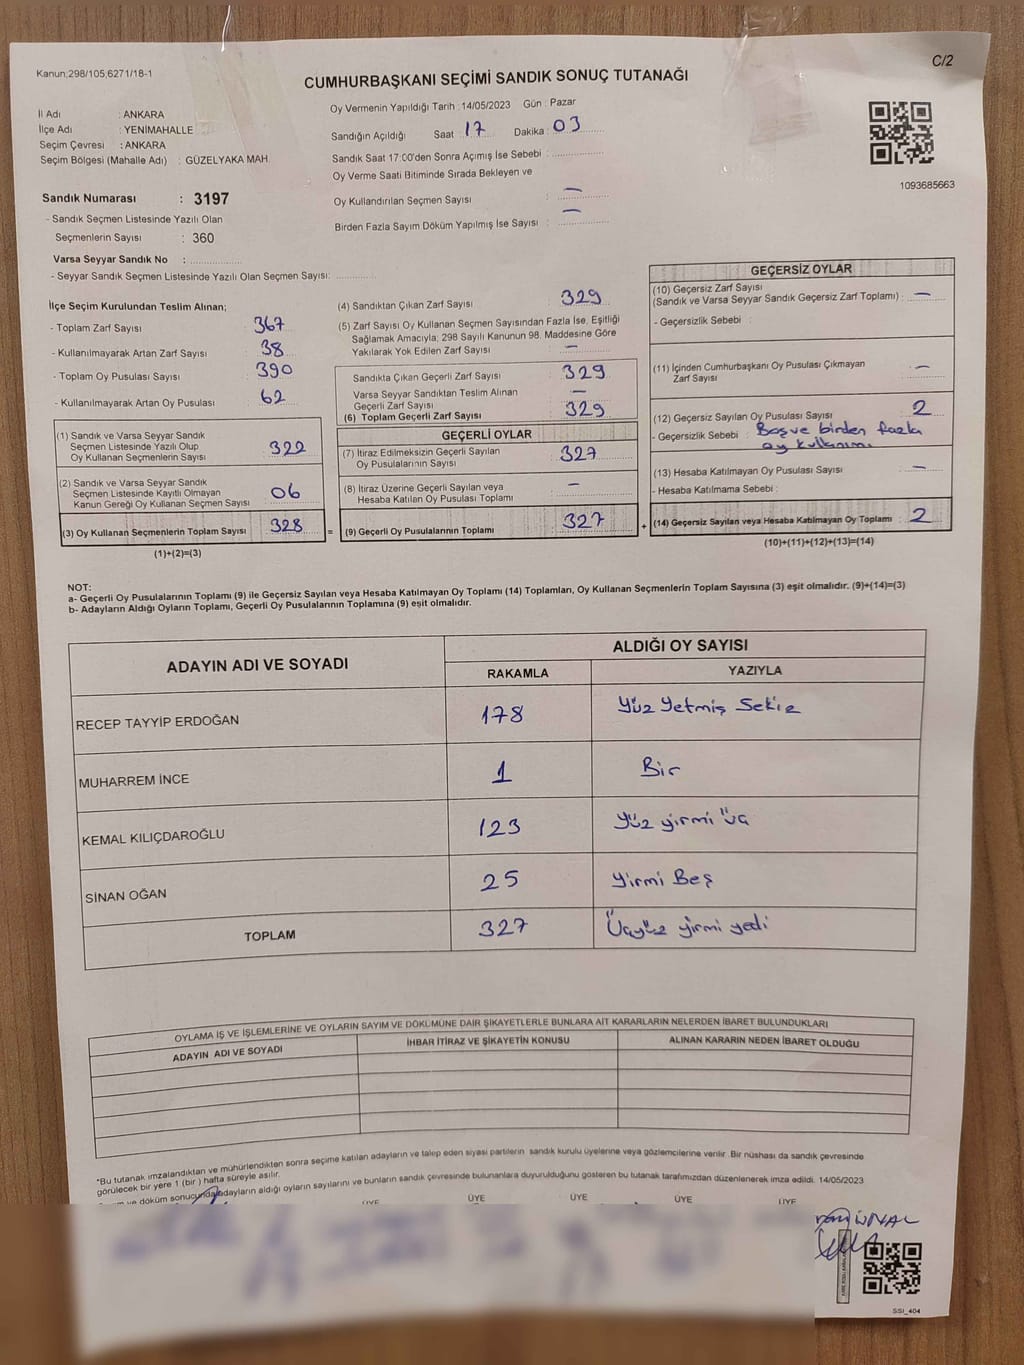 C/2
Kanun;298/105,6271/18-1
CUMHURBAŞKANI SEÇİMİ SANDIK SONUÇ TUTANAĞI
İl Adı : ANKARA
İlçe Adı : YENİMAHALLE
Seçim Çevresi : ANKARA
Seçim Bölgesi (Mahalle Adı) : GÜZELYAKA MAH.
Oy Vermenin Yapıldığı Tarih : 14/05/2023 Gün : Pazar
Sandığın Açıldığı Saat : 17 Dakika : 03
Sandık Saat 17:00'den Sonra Açımış İse Sebebi :
Oy Verme Saati Bitiminde Sırada Bekleyen ve
Oy Kullandırılan Seçmen Sayısı : —
Birden Fazla Sayım Döküm Yapılmış İse Sayısı : —
1093685663
Sandık Numarası : 3197
- Sandık Seçmen Listesinde Yazılı Olan
Seçmenlerin Sayısı : 360
Varsa Seyyar Sandık No :
- Seyyar Sandık Seçmen Listesinde Yazılı Olan Seçmen Sayısı:
İlçe Seçim Kurulundan Teslim Alınan;
- Toplam Zarf Sayısı 367
- Kullanılmayarak Artan Zarf Sayısı 38
- Toplam Oy Pusulası Sayısı 390
- Kullanılmayarak Artan Oy Pusulası 62
(1) Sandık ve Varsa Seyyar Sandık
Seçmen Listesinde Yazılı Olup
Oy Kullanan Seçmenlerin Sayısı 322
(2) Sandık ve Varsa Seyyar Sandık
Seçmen Listesinde Kayıtlı Olmayan
Kanun Gereği Oy Kullanan Seçmen Sayısı 06
(3) Oy Kullanan Seçmenlerin Toplam Sayısı 328
(1)+(2)=(3)
(4) Sandıktan Çıkan Zarf Sayısı 329
(5) Zarf Sayısı Oy Kullanan Seçmen Sayısından Fazla İse, Eşitliği
Sağlamak Amacıyla; 298 Sayılı Kanunun 98. Maddesine Göre
Yakılarak Yok Edilen Zarf Sayısı —
Sandıkta Çıkan Geçerli Zarf Sayısı 329
Varsa Seyyar Sandıktan Teslim Alınan
Geçerli Zarf Sayısı —
(6) Toplam Geçerli Zarf Sayısı 329
GEÇERLİ OYLAR
(7) İtiraz Edilmeksizin Geçerli Sayılan
Oy Pusulalarının Sayısı 327
(8) İtiraz Üzerine Geçerli Sayılan veya
Hesaba Katılan Oy Pusulası Toplamı —
= (9) Geçerli Oy Pusulalarının Toplamı 327
GEÇERSİZ OYLAR
(10) Geçersiz Zarf Sayısı
(Sandık ve Varsa Seyyar Sandık Geçersiz Zarf Toplamı) : —
- Geçersizlik Sebebi :
(11) İçinden Cumhurbaşkanı Oy Pusulası Çıkmayan
Zarf Sayısı —
(12) Geçersiz Sayılan Oy Pusulası Sayısı 2
- Geçersizlik Sebebi : Boş ve birden fazla
oy kullanımı
(13) Hesaba Katılmayan Oy Pusulası Sayısı —
- Hesaba Katılmama Sebebi :
+ (14) Geçersiz Sayılan veya Hesaba Katılmayan Oy Toplamı : 2
(10)+(11)+(12)+(13)=(14)
NOT:
a- Geçerli Oy Pusulalarının Toplamı (9) ile Geçersiz Sayılan veya Hesaba Katılmayan Oy Toplamı (14) Toplamları, Oy Kullanan Seçmenlerin Toplam Sayısına (3) eşit olmalıdır. (9)+(14)=(3)
b- Adayların Aldığı Oyların Toplamı, Geçerli Oy Pusulalarının Toplamına (9) eşit olmalıdır.
ADAYIN ADI VE SOYADI ALDIĞI OY SAYISI
RAKAMLA YAZIYLA
RECEP TAYYİP ERDOĞAN 178 Yüz Yetmiş Sekiz
MUHARREM İNCE 1 Bir
KEMAL KILIÇDAROĞLU 123 Yüz yirmi üç
SİNAN OĞAN 25 Yirmi Beş
TOPLAM 327 Üçyüz yirmi yedi
OYLAMA İŞ VE İŞLEMLERİNE VE OYLARIN SAYIM VE DÖKÜMÜNE DAİR ŞİKAYETLERLE BUNLARA AİT KARARLARIN NELERDEN İBARET BULUNDUKLARI
ADAYIN ADI VE SOYADI İHBAR İTİRAZ VE ŞİKAYETİN KONUSU ALINAN KARARIN NEDEN İBARET OLDUĞU
*Bu tutanak imzalandıktan ve mühürlendikten sonra seçime katılan adayların ve talep eden siyasi partilerin sandık kurulu üyelerine veya gözlemcilerine verilir. Bir nüshası da sandık çevresinde
görülecek bir yere 1 (bir) hafta süreyle asılır.
ve döküm sonucunda adayların aldığı oyların sayılarını ve bunların sandık çevresinde bulunanlara duyurulduğunu gösteren bu tutanak tarafımızdan düzenlenerek imza edildi. 14/05/2023
ÜYE ÜYE ÜYE ÜYE ÜYE
ÜNAL
SSI_404